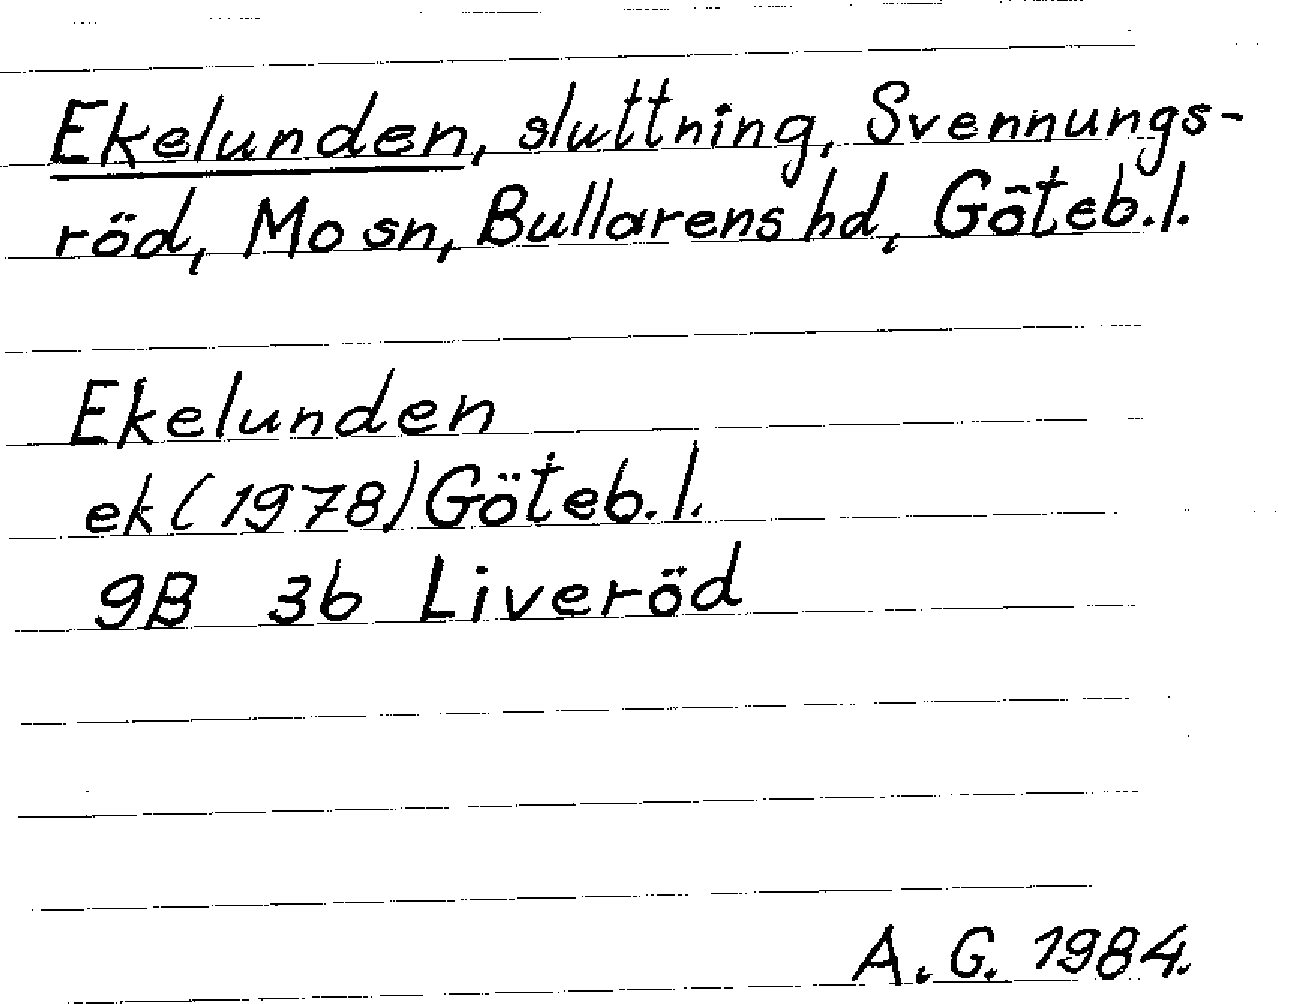 Ekelunden, sluttning, Svennungs-
röd, Mo sn, Bullarens hd, Göteb.l.
Ekelunden
ek (1978) Göteb.l.
9B 3b Liveröd
A.G. 1984.